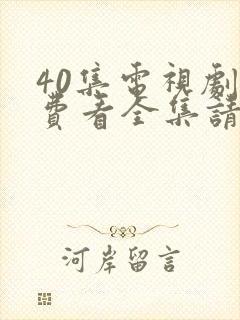 40集電視劇
費看全集請
河岸留言